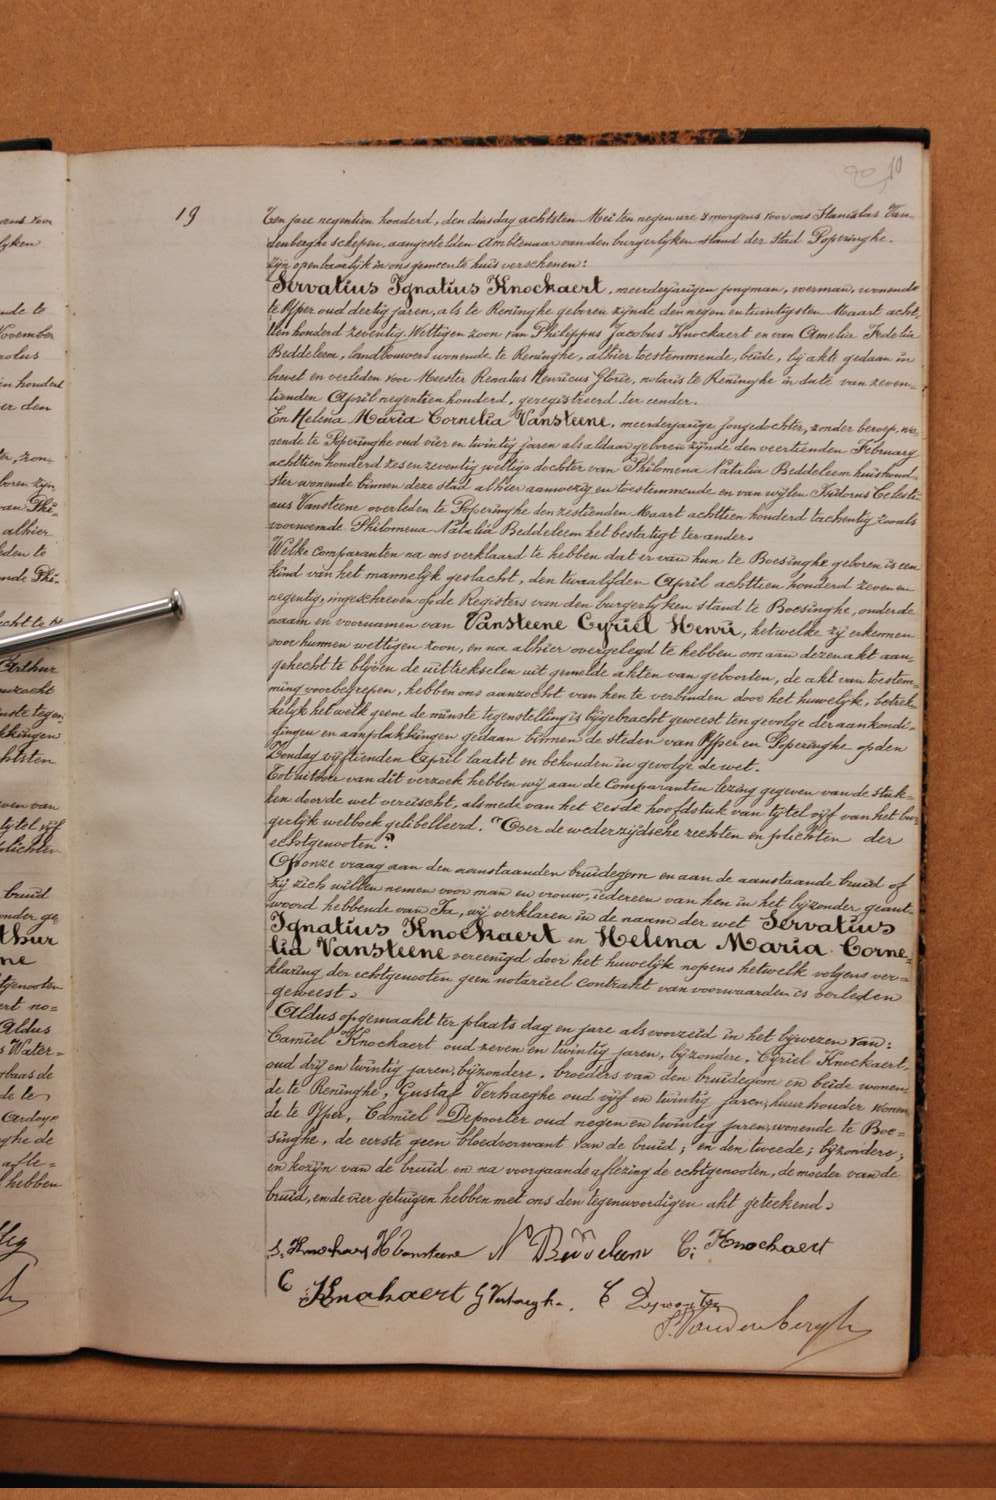 10
19
Ten jare negentien honderd, den dinsdag achtsten Mei ten negen ure s'morgens voor ons Stanislas Van-
denberghe schepen, aangestelden Ambtenaar van den burgerlyken stand der Stad Poperinghe.
zyn openbaarlijk in ons gemeente huis verschenen:
Servatius Ignatius Knockaert, meerderjarigen jongman, werkman, wonende
te Yper oud dertig jaren, als te Reninghe geboren zijnde den negen en twintigsten Maart acht,
tien honderd zeventig Wettigen zoon van Philippus Jacobus Knockaert en van Amelia Fidelia
Beddeleem, landbouwers wonende te Reninghe, alhier toestemmende, beide, bij akte gedaan in
brevet en verleden voor Meester Renatus Henricus Glorie, notaris te Reninghe in date van zeven-
tienden April negentien honderd, geregistreerd ter eender.
En Helena Maria Cornelia Vansteene, meerderjarige jongedochter, zonder beroep, wo-
nende te Poperinghe oud vier en twintig jaren als aldaar geboren zijnde den veertienden February
achttien honderd zes en zeventig wettige dochter van Philomena Natalia Beddeleem huishoud-
ster wonende binnen deze stad alhier aanwezig en toestemmende en van wijlen Isidorus Celesti-
nus Vansteene overleden te Poperinghe den zestienden Maart achttien honderd tachentig zooals
voornoemde Philomena Natalia Beddeleem het bestatigt ter ander.
Welke comparanten na ons verklaard te hebben dat er van hun te Boesinghe geboren is een
kind van het mannelyk geslacht, den twaalfden April achttien honderd zeven en
negentig, ingeschreven op de Registers van den burgerlyken stand te Boesinghe, onder de
naam en voornamen van Vansteene Cyriel Henri, hetwelke zij erkennen
voor hunnen wettigen zoon, en na alhier overgelegd te hebben om aan dezen akt aan-
gehecht te blijven de uittrekselen uit gemelde akten van geboorten, de akt van toestem-
ming voorbegrepen, hebben ons aanzocht van hen te verbinden door het huwelijk, betrek-
kelyk het welk geene de minste tegenstelling is bijgebracht geweest ten gevolge der aankondi-
gingen en aanplakkingen gedaan binnen de steden van Yper en Poperinghe op den
Zondag vijftienden April laatst en behouden in gevolge de wet.
Tot uitvoer van dit verzoek hebben wij aan de Comparanten lezing gegeven van de stuk-
ken door de wet vereischt, alsmede van het zesde hoofdstuk van tytel vijf van het bur-
gerlyk wetboek gelibelleerd. "Over de wederzijdsche rechten en plichten der
echtgenooten."
Op onze vraag aan den aanstaanden bruidegom en aan de aanstaande bruid of
zij zich willen nemen voor man en vrouw, iedereen van hen in het bijzonder geant-
woord hebbende van Ja, wij verklaren in de naam der wet Servatius
Ignatius Knockaert en Helena Maria Corne-
lia Vansteene vereenigd door het huwelyk nopens hetwelk volgens ver-
klaring der echtgenooten geen notarieel contrakt van voorwaarden is verleden
geweest.
Aldus opgemaakt ter plaats dag en jare als voorzeid in het bijwezen van:
Camiel Knockaert oud zeven en twintig jaren, bijzondere, Cyriel Knockaert,
oud drij en twintig jaren, bijzondere, broeders van den bruidegom en beide wonen-
de te Reninghe, Gustaf Verhaeghe oud vijf en twintig jaren, huurhouder wonen-
de te Yper, Camiel Depoorter oud negen en twintig jaren, wonende te Boe-
singhe, de eerste geen bloedverwant van de bruid; en den tweede; bijzondere;
en kozijn van de bruid en na voorgaande aflezing de echtgenooten, de moeder van de
bruid, en de vier getuigen hebben met ons den tegenwoordigen akt geteekend.
S. Knockaert H Vansteene N Beddeleem C. Knockaert
C Knockaert G Verhaeghe. C Depoorter
S. Vandenberghe